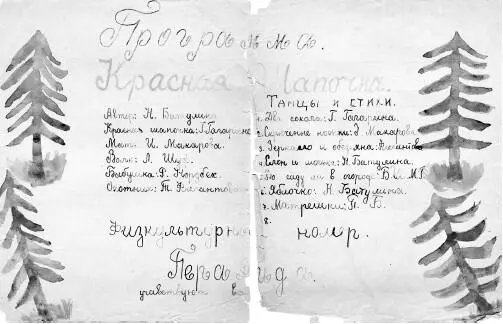 Программа.
Красная Шапочка.
Автор: Н. Батулина
Красная шапочка: Г. Гагарина
Мать: И. Макарова.
Волк: Л. Шуб.
Бабушка: Р. Нордбек.
Охотник: Т.
Танцы и стихи.
1. Два сокола: Г. Гагарина.
2. ножки: И. Макарова
3. Зеркало и обезьяна:
4. Слон и моська: Н. Батулина.
5. Во саду ли в огороде
6. Яблочко: Н. Батулина.
7. Матрешки: Н. Б.
8.
Физкультурный номер.
Пирамида.
участвуют